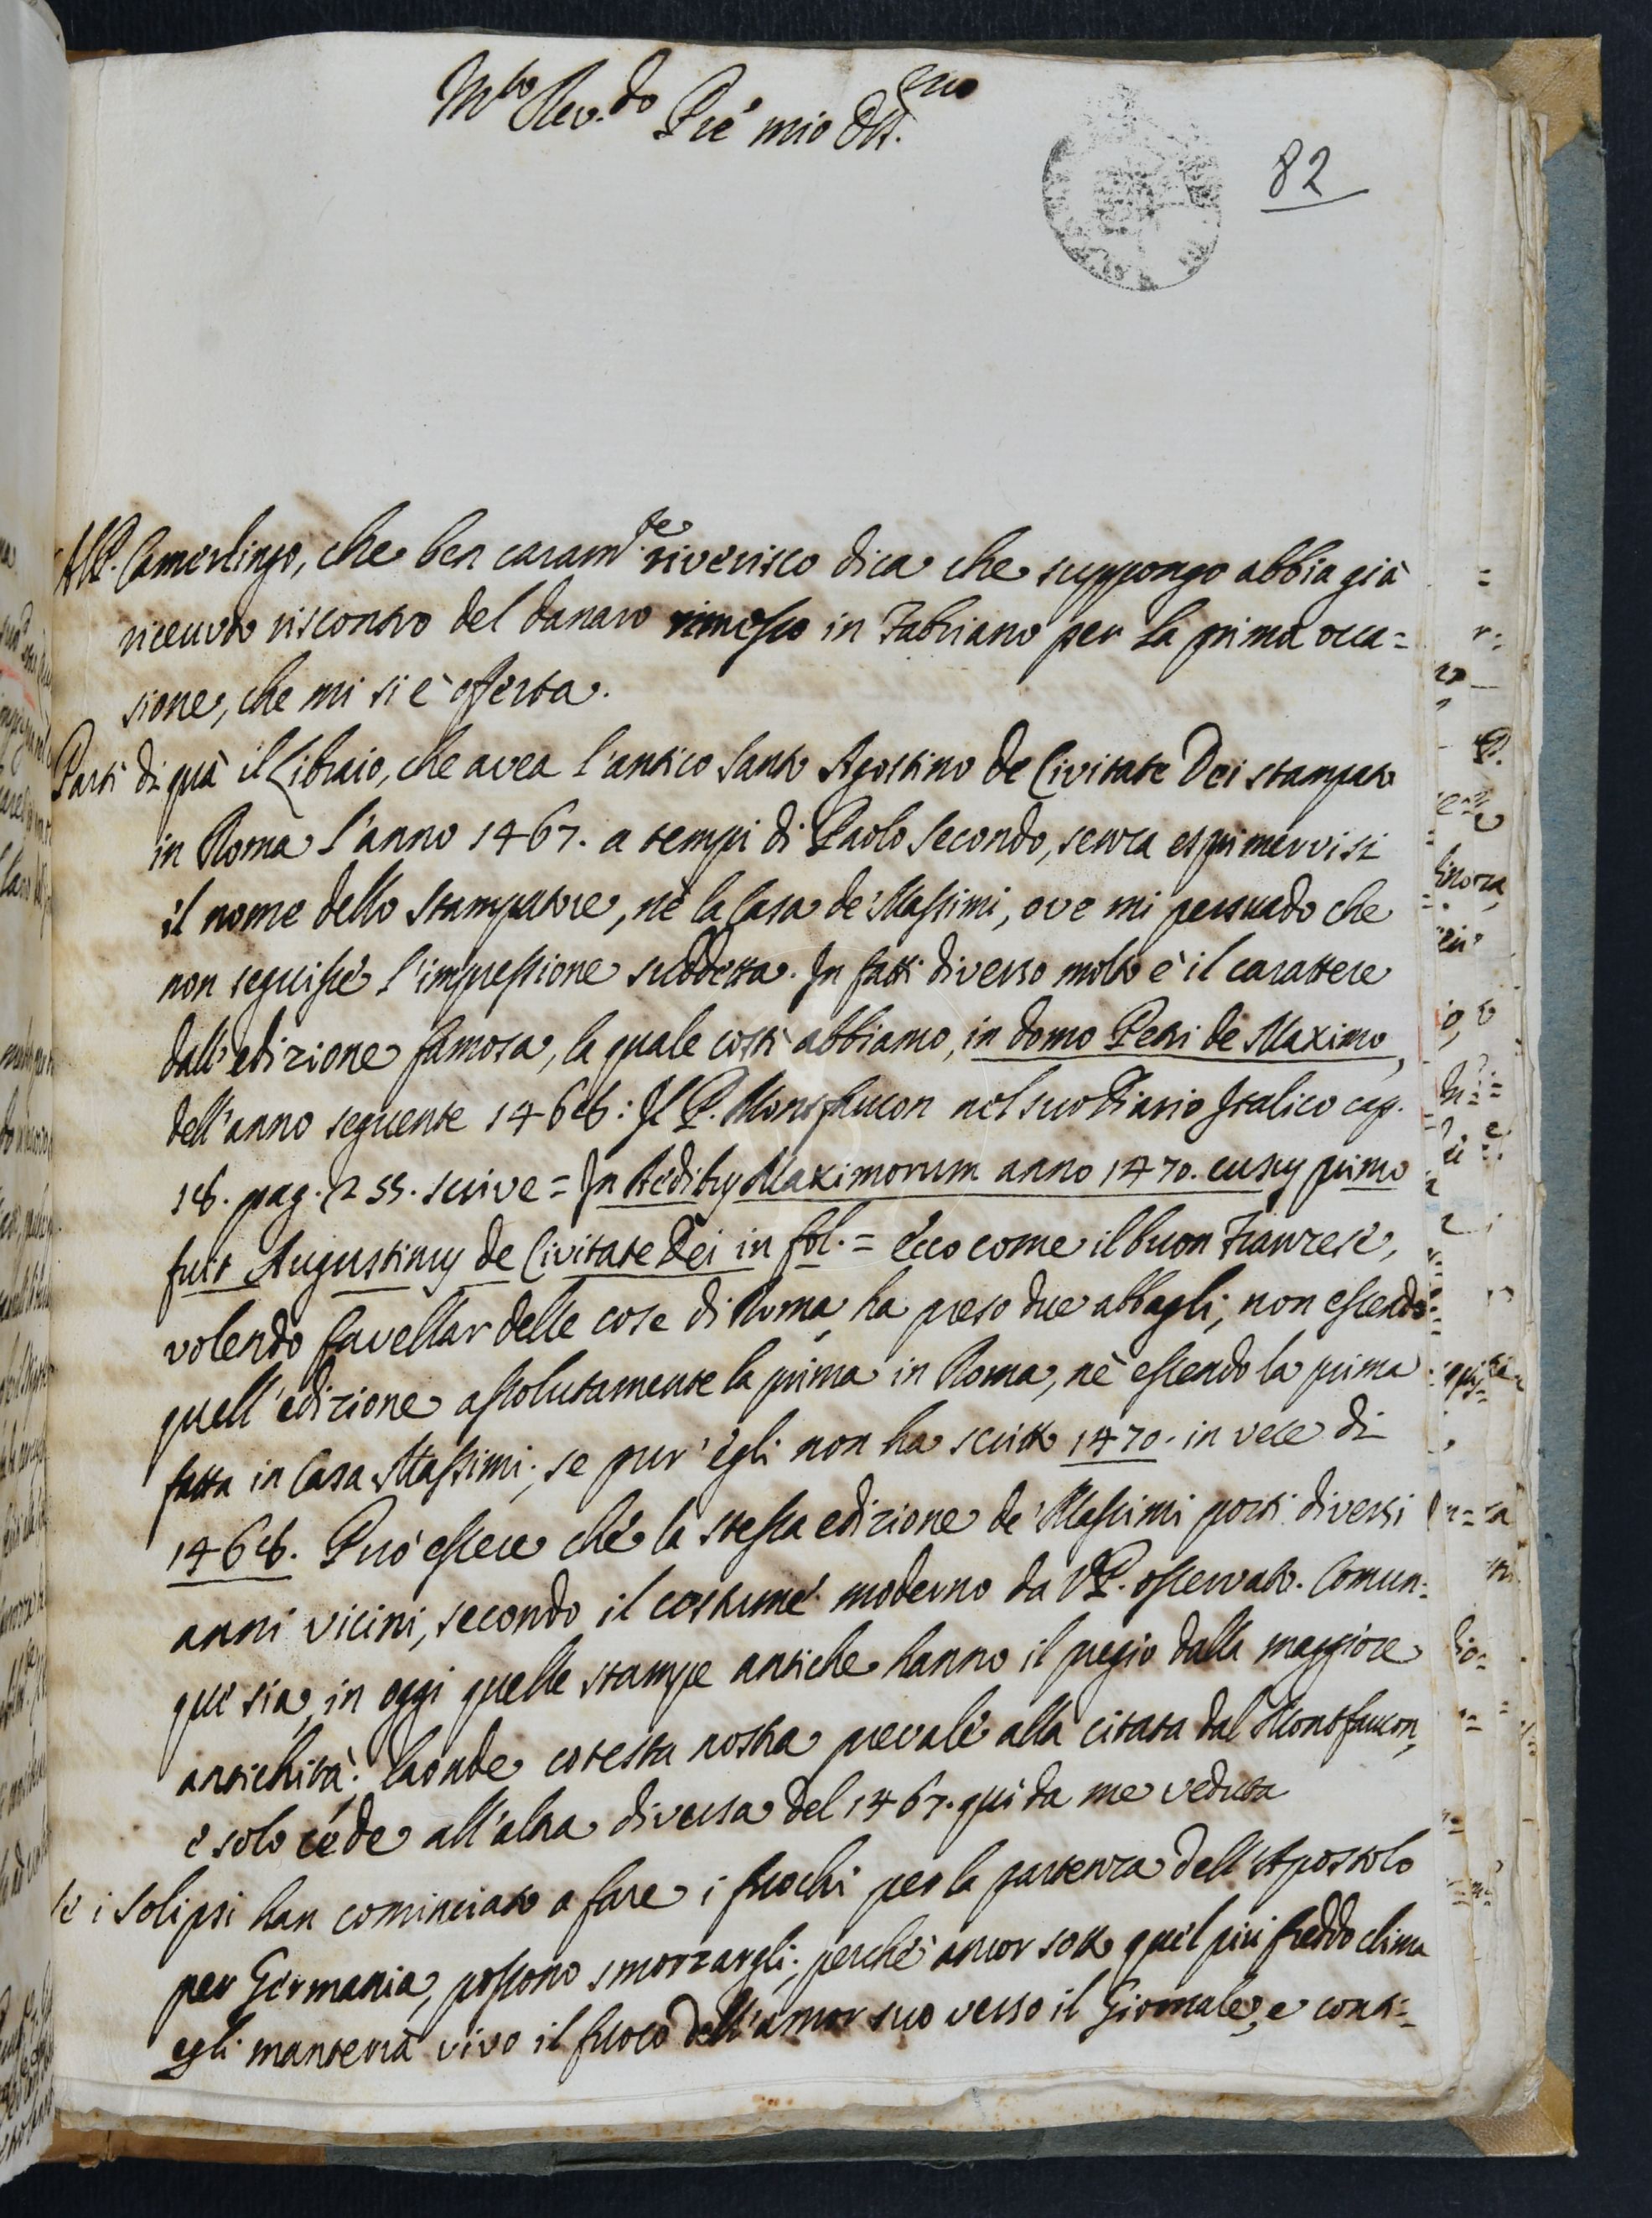 M.to Rev.do Pre mio Oss.mo
82
Al P. Camerlingo, che ben caram.te riverisco dica che suppongo abbia già
ricevuto riscontro del danaro rimesso in Fabriano per la prima occa=
sione, che mi si è offerta.
Partì di quà il Libraio, che avea l'antico Santo Agostino de Civitate Dei stampato
in Roma l'anno 1467. a tempi di Paolo Secondo, senza esprimervisi
il nome dello Stampatore, nè la Casa de' Massimi, ove mi persuado che
non seguisse l'impressione suddetta. In fatti diverso molto è il carattere
dall'edizione famosa, la quale costì abbiamo, in domo Petri de Maximo,
dell'anno seguente 1468: Il P. Montfaucon nel suo Diario Italico cap.
18. pag. 255. scrive = In Aedibus Maximorum anno 1470. cusus primo
fuit Augustinus de Civitate Dei in fol. = Ecco come il buon Franzese,
volendo favellar delle cose di Roma, ha preso due abbagli, non essendo
quell'edizione assolutamente la prima in Roma, nè essendo la prima
fatta in Casa Massimi; se pur'egli non ha scritto 1470. in vece di
1468. Può essere che la stessa edizione de' Massimi porti diversi
anni vicini, secondo il costume moderno da VP. osservato. Comun=
que sia, in oggi quelle stampe antiche hanno il pregio dalla maggiore
antichità. Laonde cotesta nostra prevale alla citata dal Montfaucon,
e solo cede all'altra diversa del 1467. quì da me veduta
Se i Solipsi han cominciato a fare i fuochi per la partenza dell'Apostolo
per Germania, possono smorzargli; perchè ancor sotto quel più freddo clima
egli manterrà vivo il fuoco dell'amor suo verso il Giornale, e conti=